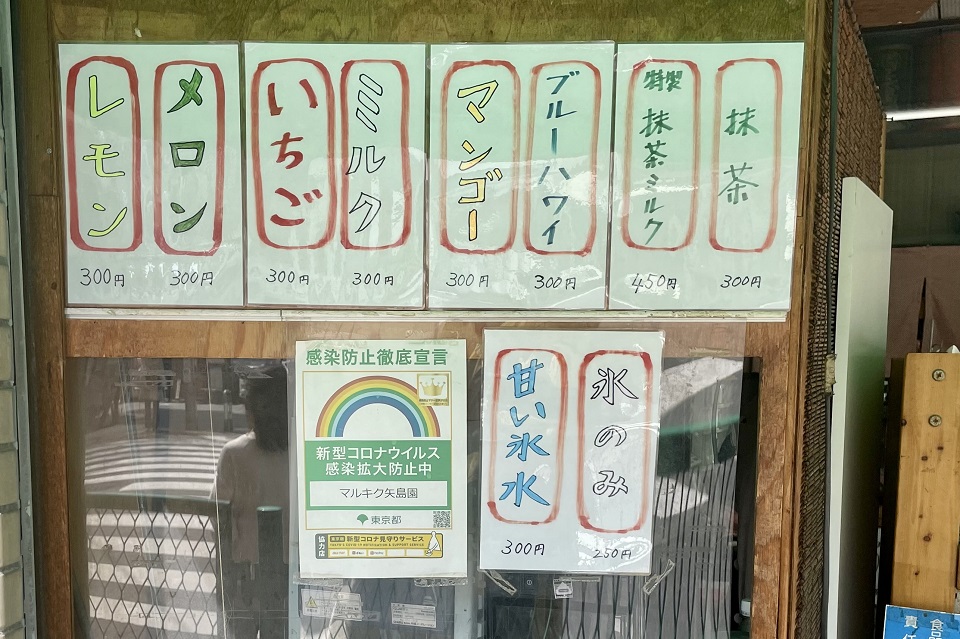 抹茶
300円
特製
抹茶ミルク
450円
ブルーハワイ
300円
マンゴー
300円
ミルク
300円
いちご
300円
メロン
300円
レモン
300円
氷のみ
250円
甘い氷水
300円
感染防止徹底宣言
新型コロナウイルス
感染拡大防止中
マルキク矢島園
東京都
協力店
新型コロナ見守りサービス
食品
責任